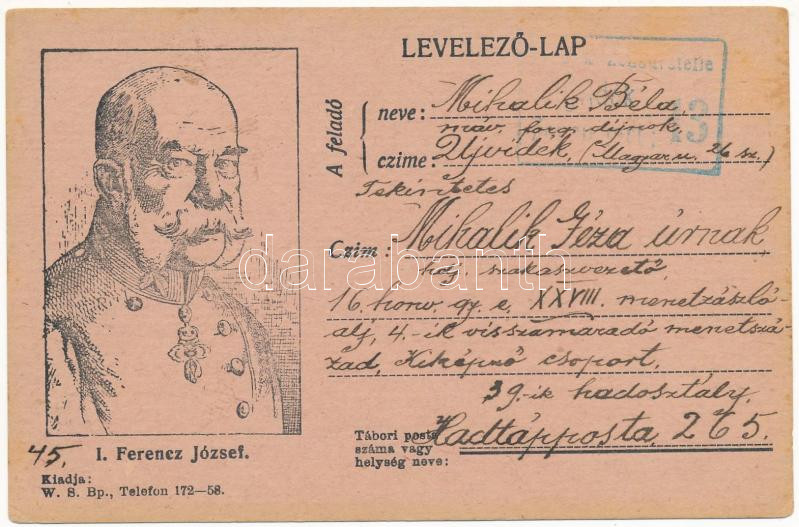 LEVELEZŐ-LAP
A feladó
neve: Mihalik Béla
máv. forg. díjnok.
czime: Ujvidék, (Magar u. 26 sz.)
13
Tekintetes
Czim: Mihalik Géza úrnak
szakaszvezető
16. honv. gy. e. XXVIII. menetzászló-
alj, 4.-ik visszamaradó menetszá-
zad, Kiképző csoport,
39-ik hadosztály.
Tábori posta
száma vagy
helység neve:
Hadtápposta 265.
45.
I. Ferencz József.
Kiadja:
W. S. Bp., Telefon 172—58.
darabanth